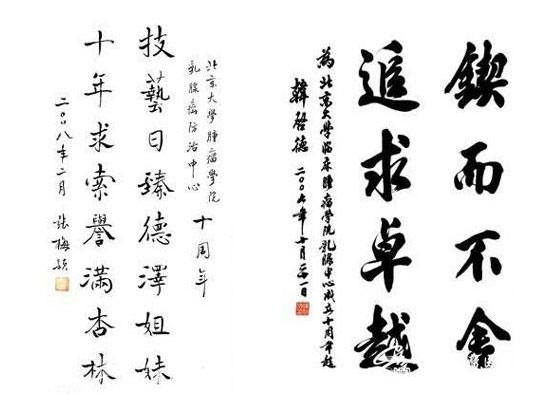 鍥而不舍
追求卓越
為北京大学临床腫瘤学院乳腺中心成立十周年题
韓啓德 二〇〇七年十月
北京大學腫瘤學院
乳腺癌防治中心
十周年
技藝日臻德澤姐妹
十年求索譽滿杏林
二〇〇八年二月 張梅穎